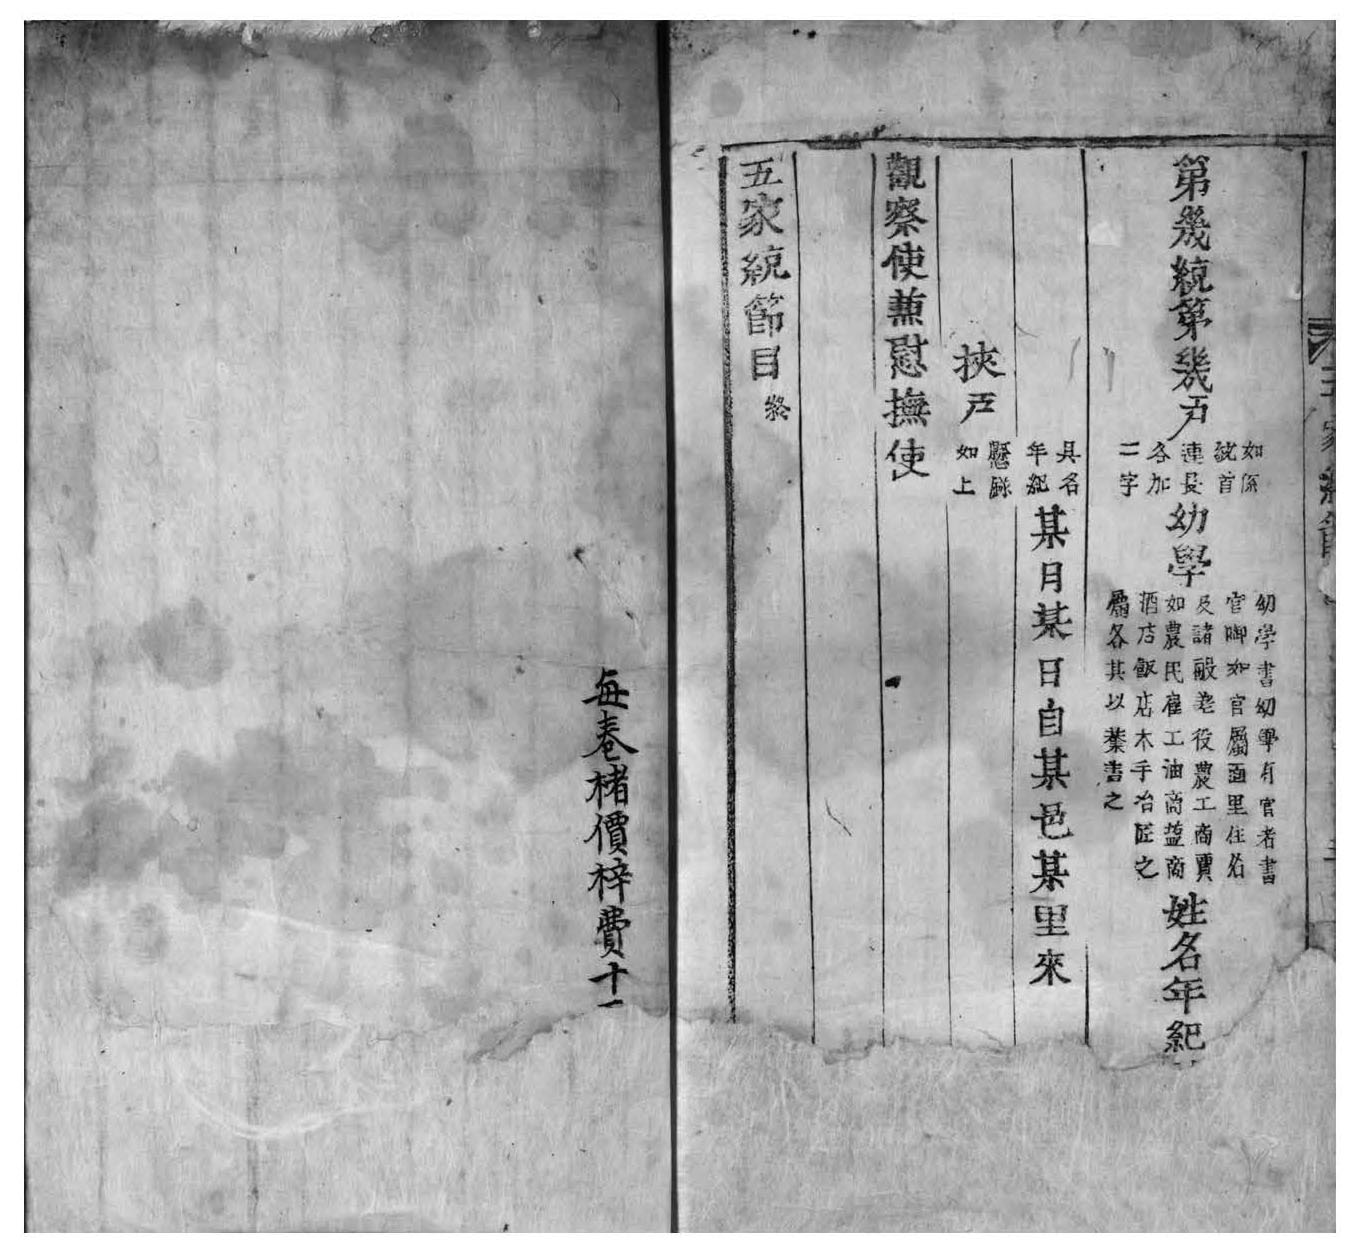 第幾統第幾戶
如係
統首
連長
各加
二字
幼學
幼學書幼學有官者書
官啣如官屬面里任名
及諸般差役農工商賈
如農民雇工油商盐商
酒店飯店木手冶匠之
屬各其以業書之
姓名年紀
具名
年紀
某月某日自某邑某里來
挾戶
懸錄
如上
觀察使兼慰撫使
五家統節目終
每卷楮價梓費十